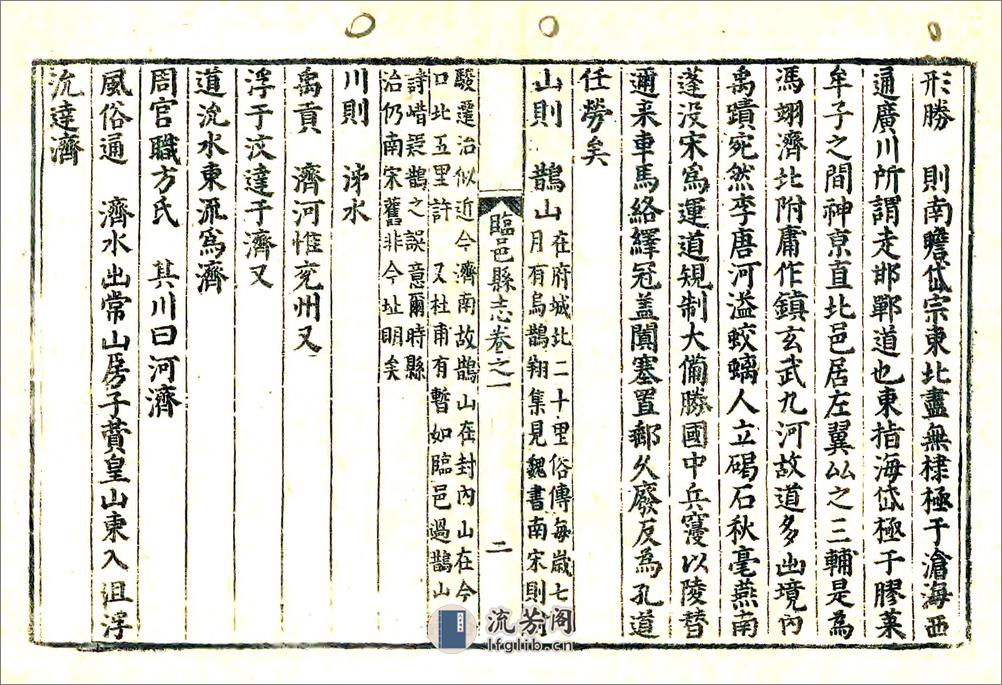 形勝　則南瞻岱宗東北盡無棣極于滄海西
通廣川所謂走邯鄲道也東指海岱極于膠萊
牟子之間神京直北邑居左翼公之三輔是為
馮翊濟北附庸作鎮玄武九河故道多出境內
禹蹟宛然李唐河溢蛟螭人立碣石秋毫燕南
蓬没宋為運道規制大備勝國中兵寖以陵替
邇来車馬絡繹冠盖闐塞置郵久廢反為孔道
任勞矣
山則　鵲山在府城北二十里俗傳每歲七
月有烏鵲翔集見魏書南宋則
臨邑縣志卷之一　二
駿遷治似近今濟南故鵲山在封內山在今
口北五里許　又杜甫有暫如臨邑過鵲山
詩㟙㠋鵲之誤意爾時縣
治仍南宋舊非今址明矣
川則　泲水
禹貢　濟河惟兖州又
浮于汶達于濟又
道沇水東流為濟
周官職方氏　其川曰河濟
風俗通　濟水出常山房子蕡皇山東入沮浮
沇達濟
流芳阁
lfglib.cn